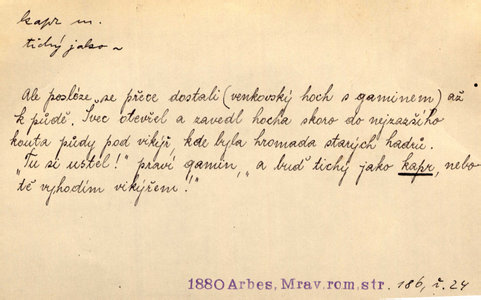 kapr m.
tichý jako ~
Ale posléze se přece dostali (venkovský hoch s gaminem) až
k půdě. Švec otevřel a zavedl hocha skoro do nejzazšího
kouta půdy pod vikýř, kde byla hromada starých hadrů.
„Tu si ustel!" praví gamin, „a buď tichý jako kapr, nebo
tě vyhodím vikýřem!"
1880 Arbes, Mrav. rom. str. 186, ř. 24